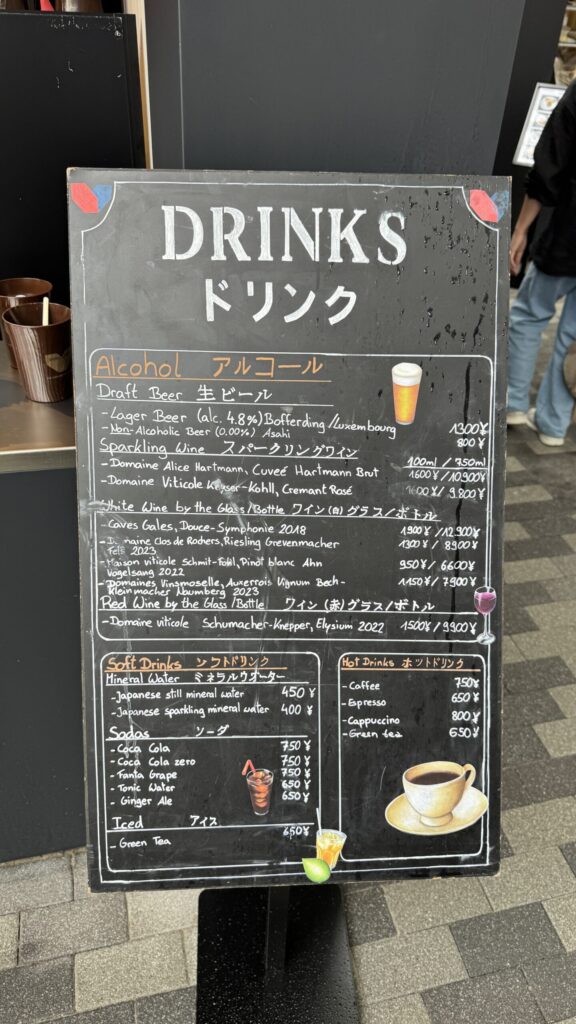 DRINKS
ドリンク
Alcohol アルコール
Draft Beer 生ビール
- Lager Beer (alc. 4.8%) Bofferding/Luxembourg 1300¥
- Non-Alcoholic Beer (0,00%) Asahi 800¥
Sparkling Wine スパークリングワイン 100ml / 750ml
- Domaine Alice Hartmann, Cuveé Hartmann Brut 1600¥/10900¥
- Domaine Viticole Keyser-Kohll, Cremant Rosé ¥/9.800¥
White Wine by the Glass/Bottle ワイン(白)グラス/ボトル
- Caves Gales, Douce-Symphonie 2018 1900¥/12900¥
- Domaine Clos de Rochers, Riesling Grevenmacher 1300¥/8900¥
2023
- Maison viticole Schmit-Fohl, Pinot blanc Ahn 950¥/6600¥
Vogelsang 2022
- Domaines Vinsmoselle, Auxerrois Vignum Bech- 1150¥/7900¥
Kleinmacher Naumberg 2023
Red Wine by the Glass/Bottle ワイン(赤)グラス/ボトル
- Domaine viticole Schumacher-Knepper, Elysium 2022 1500¥/9900¥
Soft Drinks ソフトドリンク
Mineral Water ミネラルウォーター
- Japanese still mineral water 450¥
- Japanese sparkling mineral water 400¥
Sodas ソーダ
- Coca Cola 750¥
- Coca Cola zero 750¥
- Fanta Grape 750¥
- Tonic Water 650¥
- Ginger Ale 650¥
Iced アイス
- Green Tea 650¥
Hot Drinks ホットドリンク
- Coffee 750¥
- Espresso 650¥
- Cappuccino 800¥
- Green tea 650¥